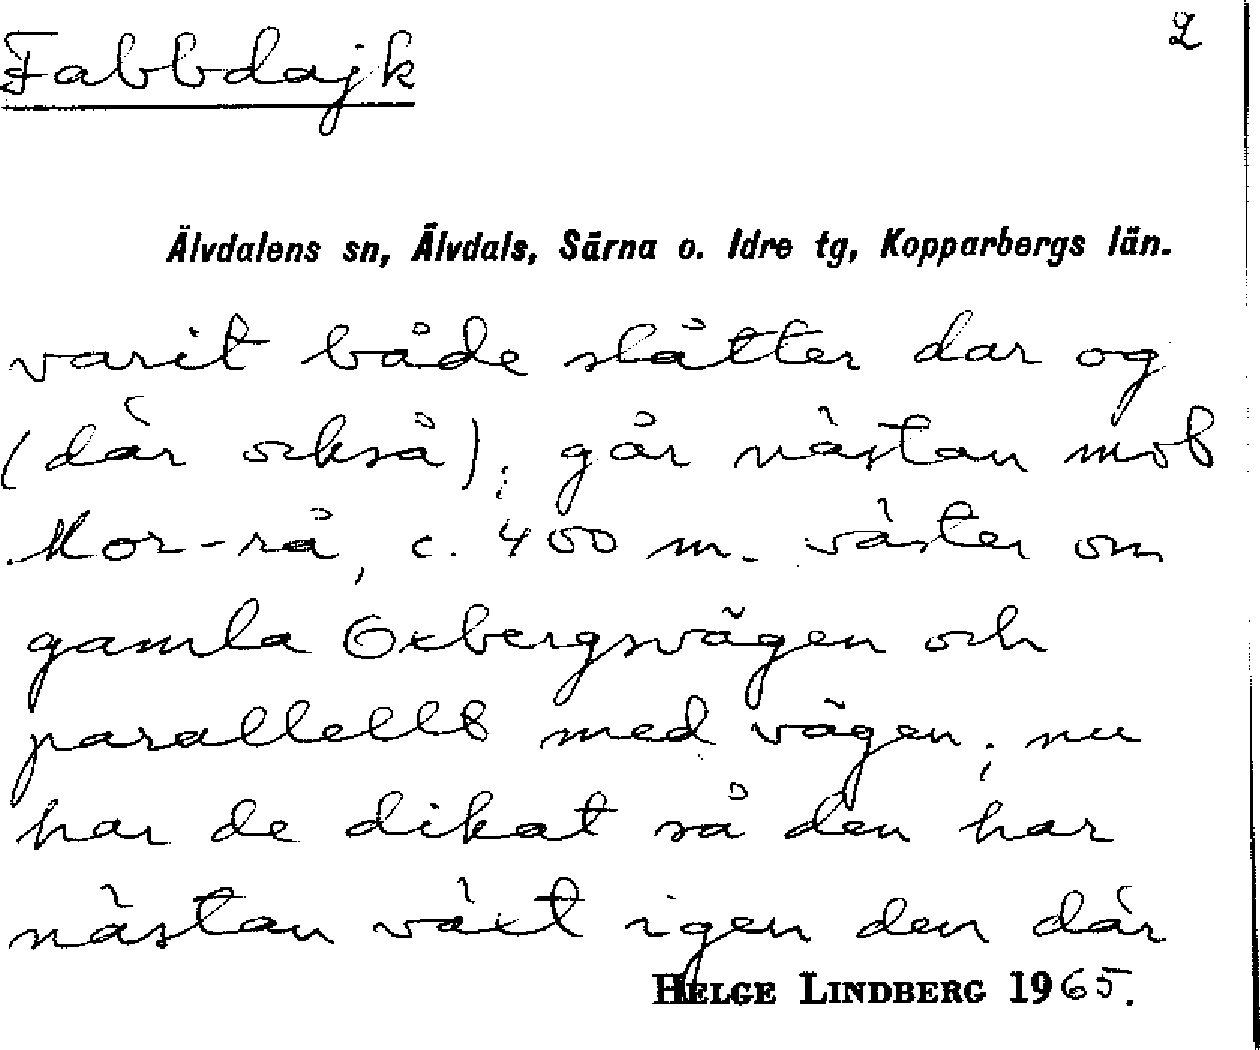 Fabbdajk
2
Älvdalens sn, Älvdals, Särna o. Idre tg, Kopparbergs län.
varit både slåtter dar og
(där också); går nästan mot
Mor-rå, c. 400 m. väster om
gamla Oxbergsvägen och
parallellt med vägen; nu
har de dikat så den har
nästan växt igen den där
HELGE LINDBERG 1965.